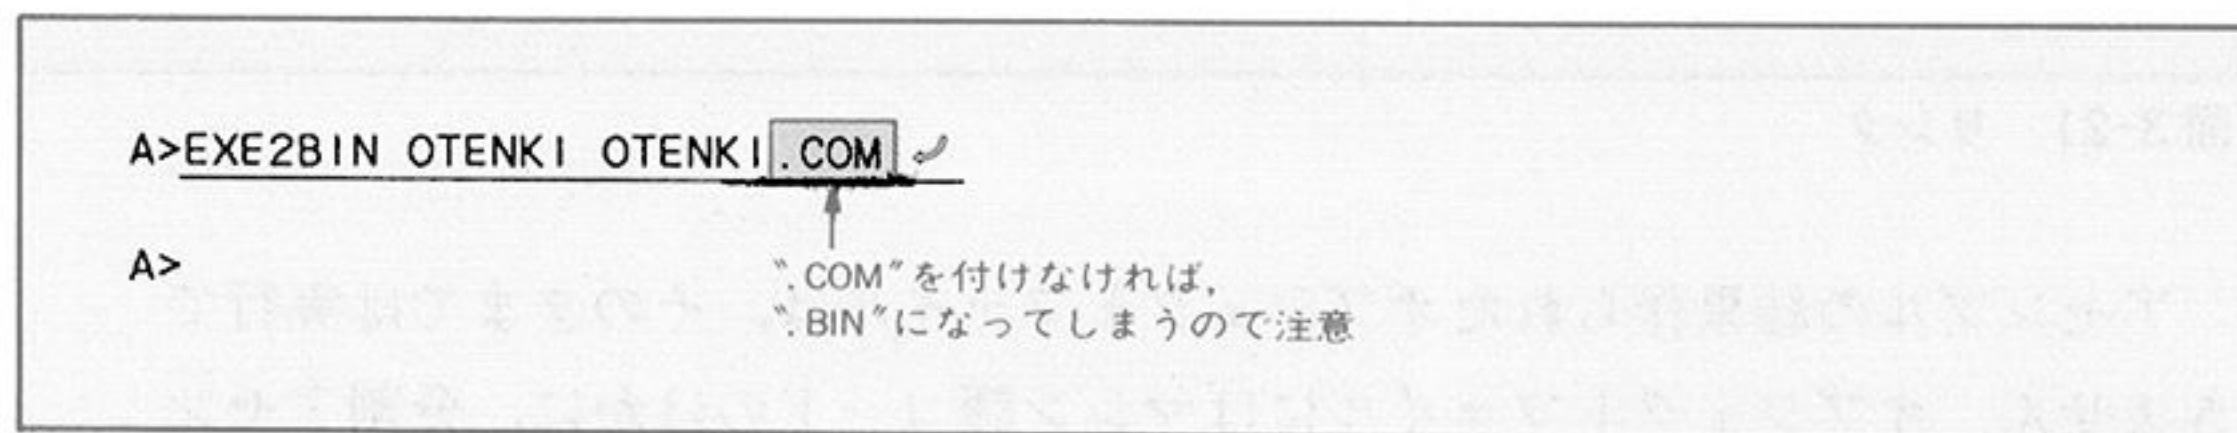 A>EXE2BIN OTENKI OTENKI.COM
A>
".COM"を付けなければ,
".BIN"になってしまうので注意